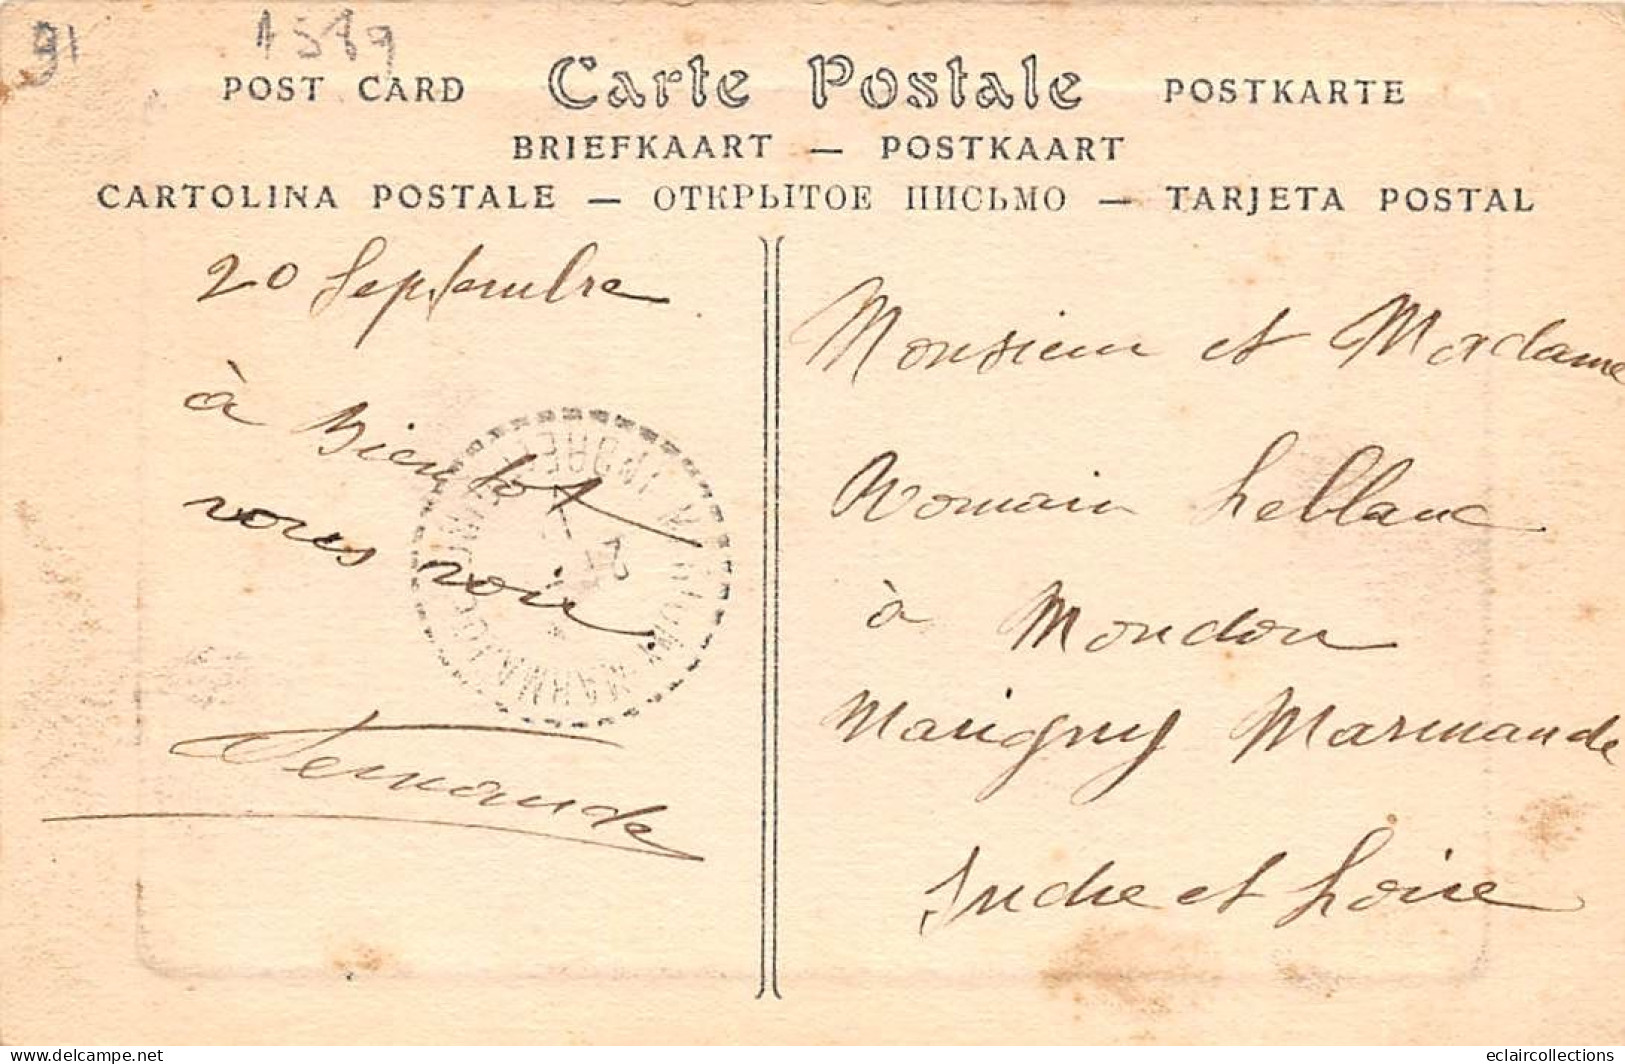 91
1589
POST CARD Carte Postale POSTKARTE
BRIEFKAART — POSTKAART
CARTOLINA POSTALE — ОТКРЫТОЕ ПИСЬМО — TARJETA POSTAL
20 Septembre
à Bientot
vous voir.
Fernande
Monsieur et Madame
Romain Leblanc
à Mondon
Marigny Marmande
Indre et Loire
MARIGNY-MARMANDE
INDRE-ET-
eclaircollections